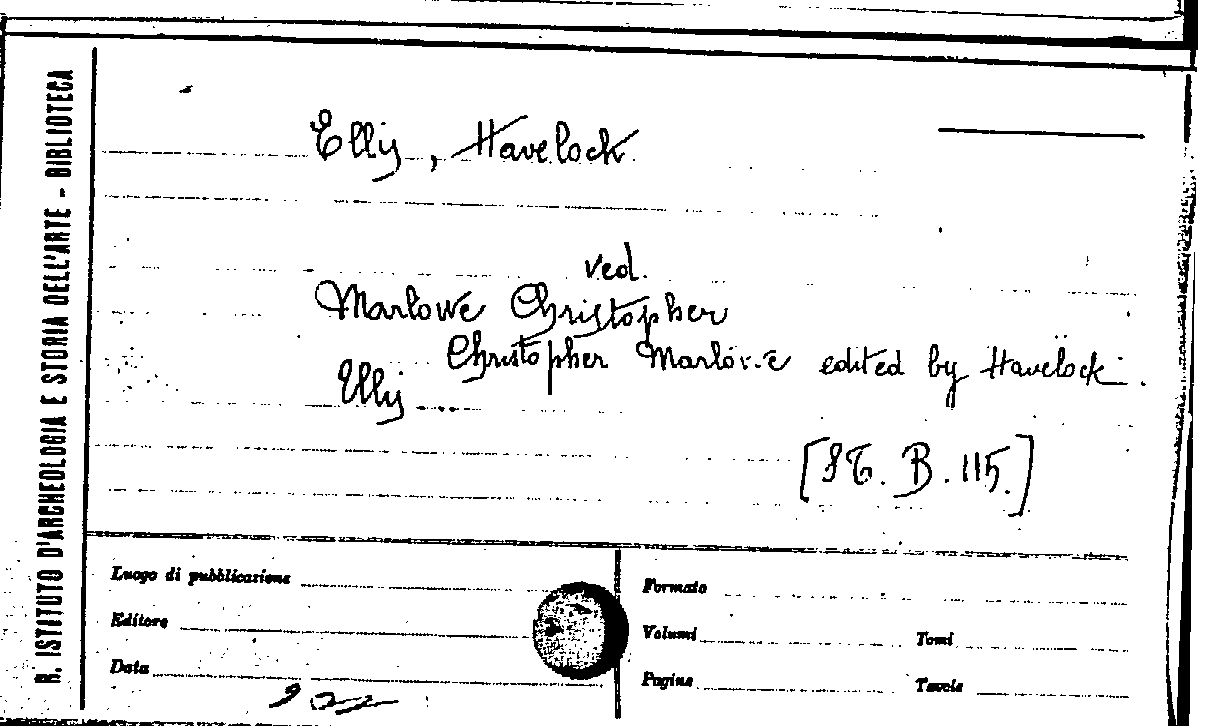 R. ISTITUTO D'ARCHEOLOGIA E STORIA DELL'ARTE - BIBLIOTECA
Ellis, Havelock
ved.
Marlowe Christopher
Christopher Marlowe edited by Havelock
Ellis ....
[ST. B. 115.]
Luogo di pubblicazione
Editore
Data
Formato
Volumi
Tomi
Pagine
Tavole